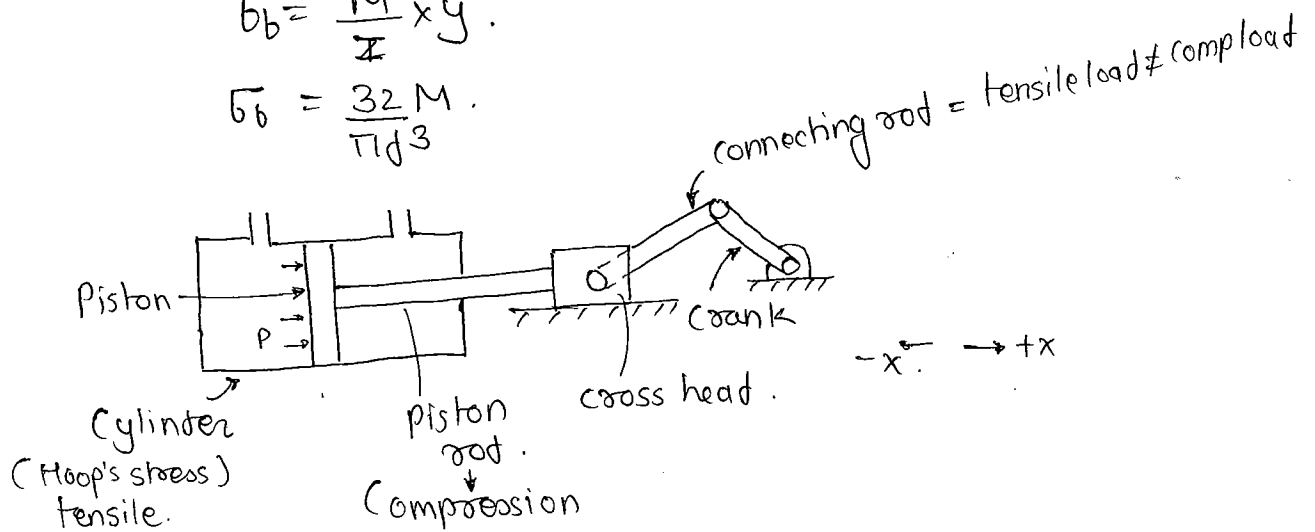 σb = M/I × y.
σb = 32M/πd³.
connecting rod = tensile load ≠ comp load
Piston
P
crank
-x ← → +x
cross head.
Cylinder
(Hoop's stress)
tensile.
piston
rod.
↓
Compression